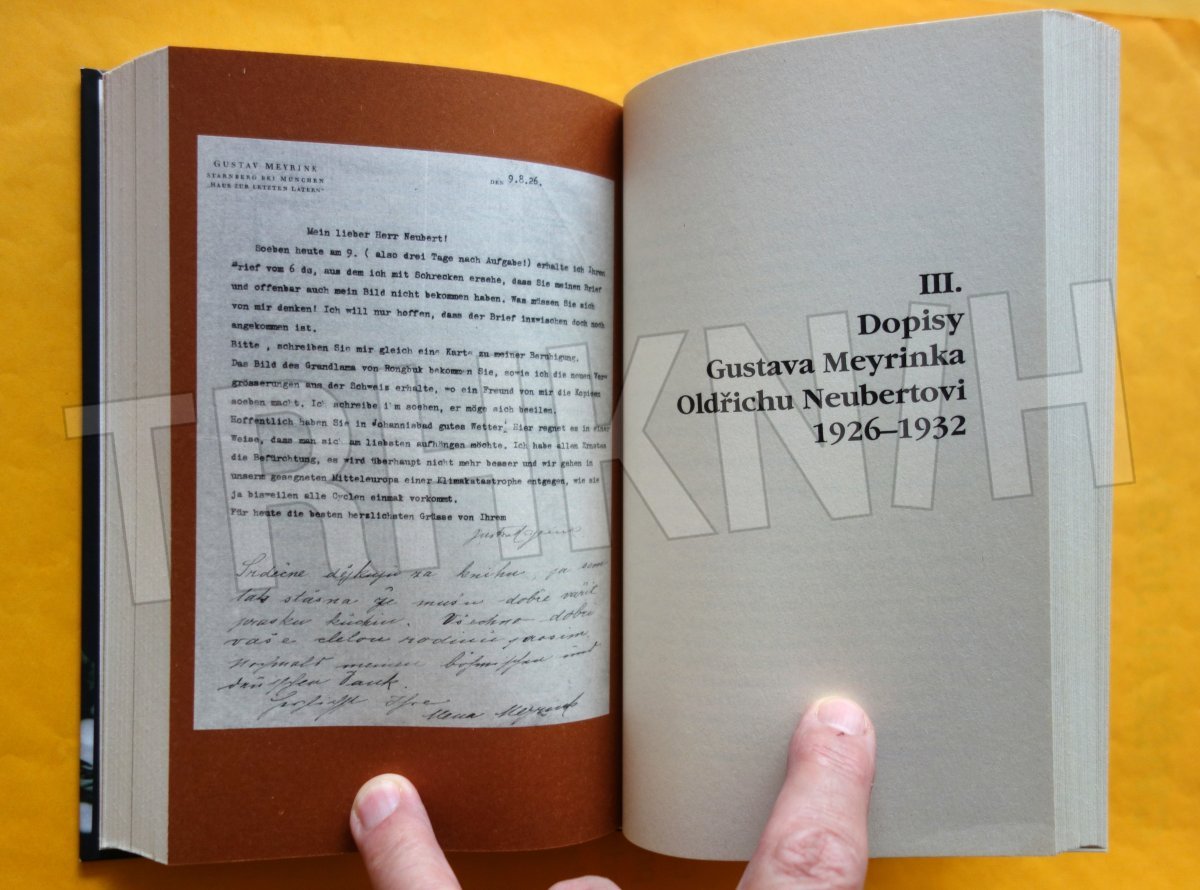 GUSTAV MEYRINK
STARNBERG BEI MÜNCHEN
„HAUS ZUR LETZTEN LATERN“
DEN 9.8.26.
Mein lieber Herr Neubert!
Soeben heute am 9. ( also drei Tage nach Aufgabe!) erhalte ich Ihren
Brief vom 6 ds, aus dem ich mit Schrecken ersehe, dass Sie meinen Brief
und offenbar auch mein Bild nicht bekommen haben. Was müssen Sie sich
von mir denken! Ich will nur hoffen, dass der Brief inzwischen doch noch
angekommen ist.
Bitte , schreiben Sie mir gleich eine Karte zu meiner Beruhigung.
Das Bild des Grandlama von Rongbuk bekommen Sie, sowie ich die neuen Ver=
grösserungen aus der Schweiz erhalte, wo ein Freund von mir die Kopieen
soeben macht. Ich schreibe i'm soeben, er möge sich beeilen.
Hoffentlich haben Sie in Johannisbad gutes Wetter! Hier regnet es in einer
Weise, dass man sich am liebsten aufhängen möchte. Ich habe allen Ernstes
die Befürchtung, es wird überhaupt nicht mehr besser und wir gehen in
unserm gesegneten Mitteleuropa einer Klimakatastrophe entgegen, wie sie
ja bisweilen alle Cyclen einmak vorkommt.
Für heute die besten herzlichsten Grüsse von Ihrem
Srdečne děkuju za knihu, ja sem
tak stásna že mušu dobře vařit
prasku kuchin. Všechno dobri
vaše celou rodinu prosim.
Nochmals meinen böhmischen und
deutschen Dank.
Herzlichst Ihre
Mena Meyrink
III.
Dopisy
Gustava Meyrinka
Oldřichu Neubertovi
1926–1932
TRHKNIH